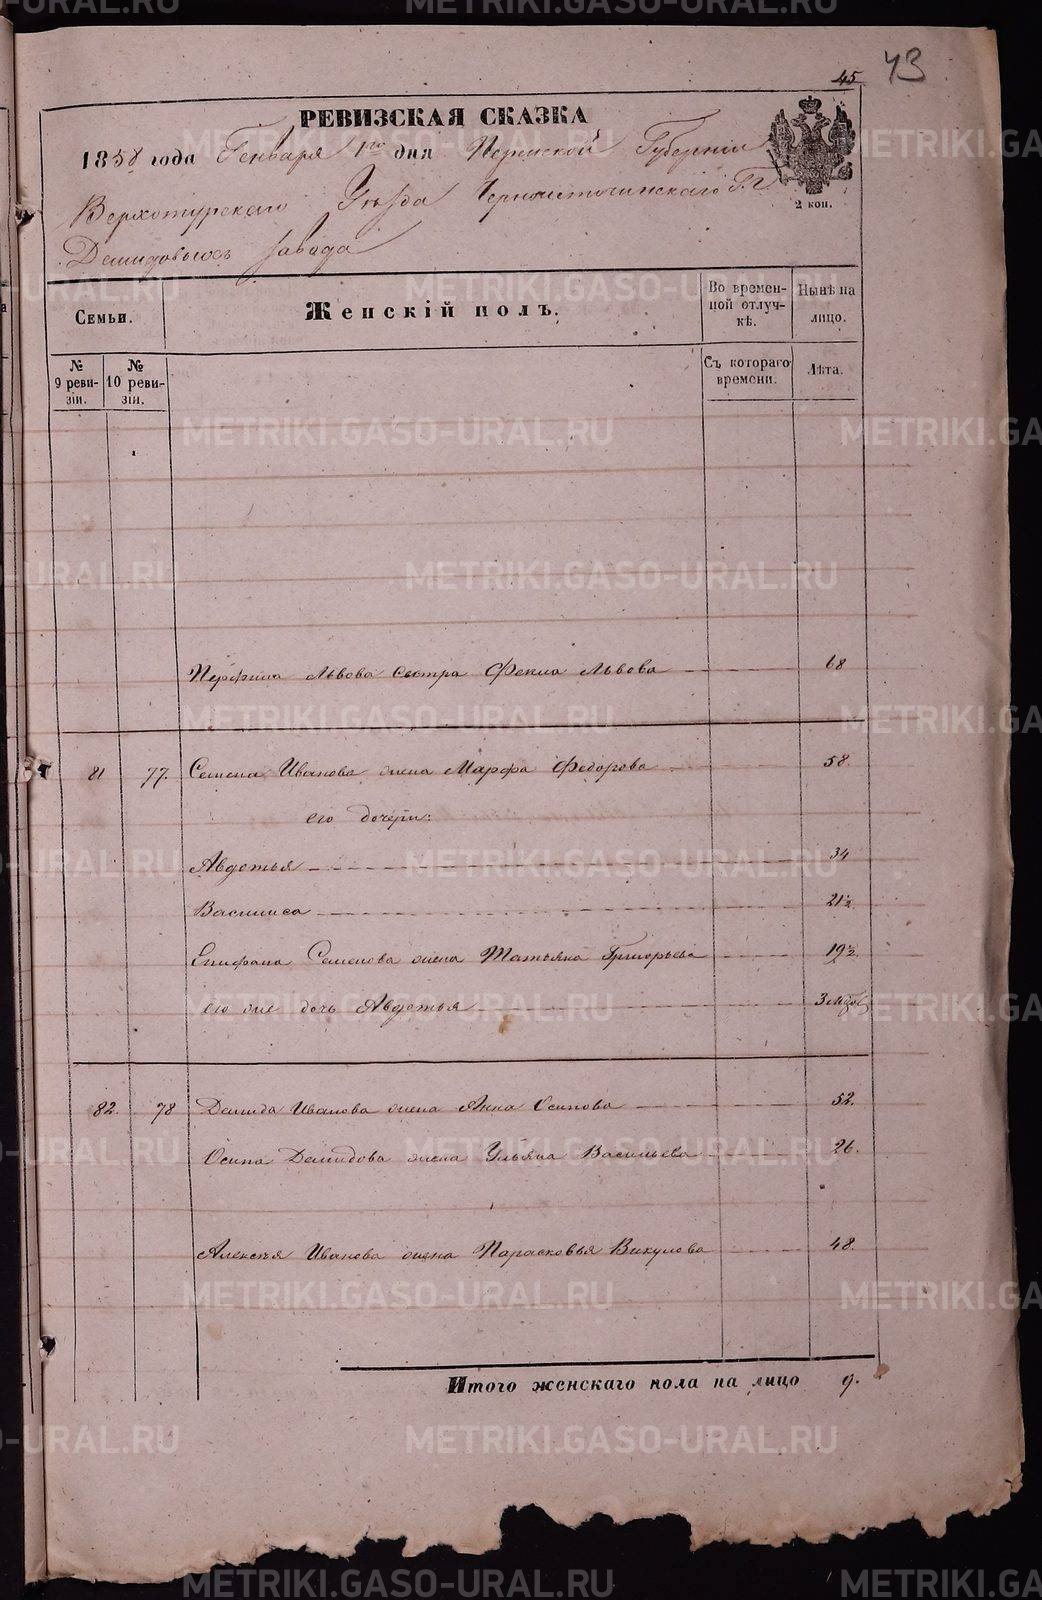 45
43
РЕВИЗСКАЯ СКАЗКА
1858 года Генваря 1го дня Пермской Губернии
Верхотурскаго Уѣзда Черноисточинскаго Г.г.
Демидовыхъ завода
2 коп.
Семьи.
Женскій полъ.
Во времен-
ной отлуч-
кѣ.
Нынѣ на
лицо.
№
9 реви-
зіи.
№
10 реви-
зіи.
Съ котораго
времени.
Лѣта.
Перфила Львова сестра Фекла Львова 68
81 77. Семена Иванова жена Марфа Федорова 58.
его дочери:
Авдотья 34
Василиса 21½
Епифана Семенова жена Татьяна Григорьева 19½
его же дочь Авдотья 3 мѣся
82. 78 Демида Иванова жена Анна Осипова 52.
Осипа Демидова жена Ульяна Васильева 26.
Алексѣя Иванова жена Парасковья Викулова 48.
Итого женскаго пола на лицо 9.
METRIKI.GASO-URAL.RU